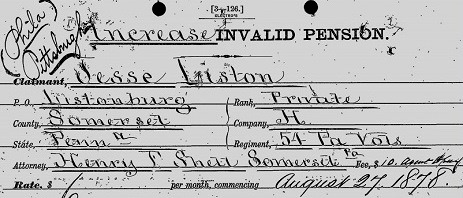 [3—126.]
ELECTROTYPE
(Phila)
(Pittsburgh)
Increase INVALID PENSION.
Claimant, Jesse Liston
P. O., Listonburg Rank, Private
County, Somerset Company, H.
State, Penn a Regiment, 54 Pa Vols
Attorney, Henry F Somerset Pa Fee, $10.
Rate. $ per month, commencing August 27, 1878.